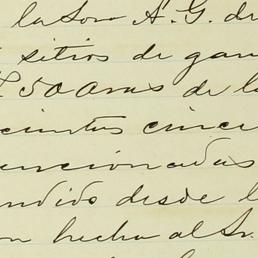 la Sra A. G. de
sitios de gan
50 Oras de la
cientas cince
encionadas
ndido desde l
on hecha al Sr.